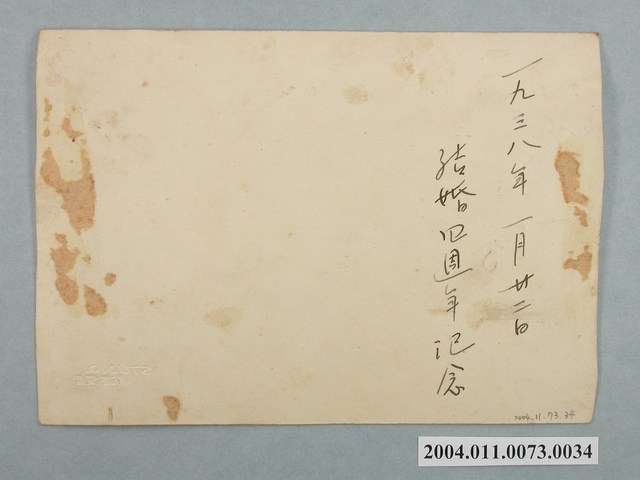 一九三八年一月廿二日
結婚四週年記念
2004.11.73.34
2004.011.0073.0034